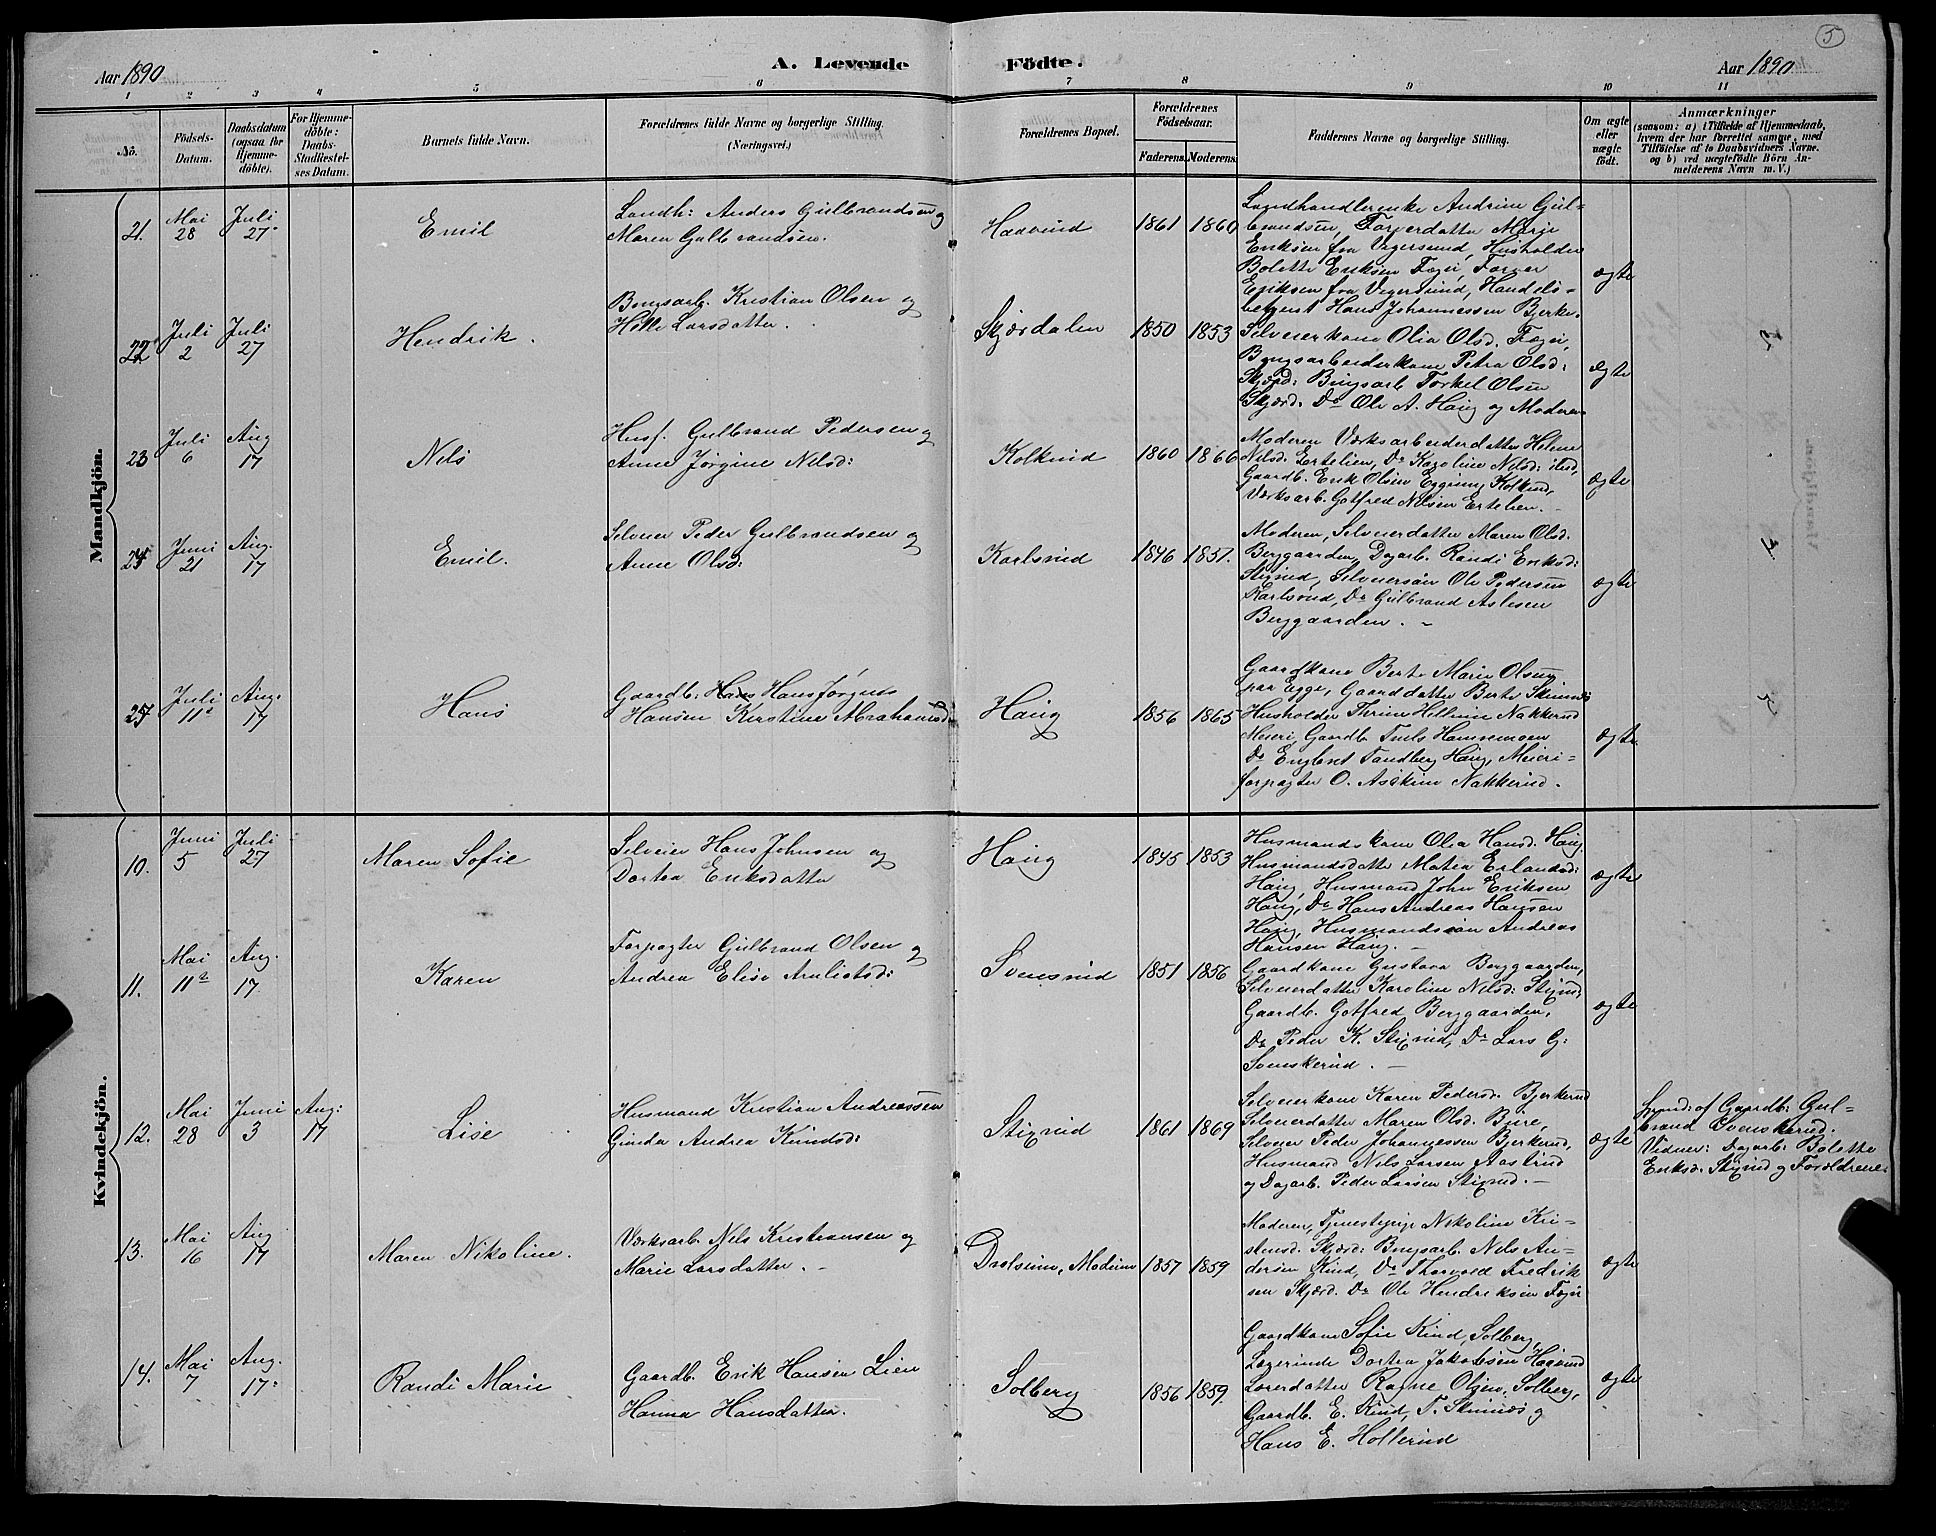 5
Aar 1890
A. Levende Födte.
Aar 1890
1 2 3 4 5 6 7 8 9 10 11
No.
Födsels-
Datum.
Daabsdatum
(ogsaa for
Hjemme-
döbte).
For Hjemme-
döbte:
Daabs-
Stadfæstel-
ses Datum.
Barnets fulde Navn.
Forældrenes fulde Navne og borgerlige Stilling.
(Næringsvei.)
Forældrenes Bopæl.
Forældrenes
Födselsaar.
Faderens. Moderens.
Faddernes Navne og borgerlige Stilling.
Om ægte
eller
uægte
födt.
Anmærkninger
(saasom: a) i Tilfælde af Hjemmedaab,
hvem der har forrettet samme, med
Tilföielse af to Daabsvidners Navne.
og b) ved uægtefödte Börn An-
melderens Navn m. V.)
Mandkjön.
21.
Mai
28
Juli
27.
Emil
Landh: Anders Gulbrandsen og
Maren Gulbrandsen.
Haavind
1861 1860
Landhandlerenke Andrine Gul-
brandsen, Farverdatter Marie
Eriksen fra Vegersund, Husholder
Bolette Eriksen Fægri, Farver
Eriksen fra Vegersund, Handels-
betjent Hans Johannessen Bjerke.
ægte
22
Juli
2
Juli
27
Hendrik.
Brugsarb. Kristian Olsen og
Helle Larsdatter.
Skjærdalen
1850 1853
Selveierkone Olia Olsd. Fægri,
Brugsarbeiderkone Petra Olsd:
Skjærd: Brugsarb Torkel Olsen
Skjærd. Do Ole A. Haug og Moderen
ægte
23
Juli
6
Aug
17
Nels
Husf. Gulbrand Pedersen og
Anne Jørgine Nelsd:
Kolkrud
1860 1866
Moderen Værksarbeiderdatter Helene
Nelsd. Ertelien, Do Karoline Nelsd: ibid,
Gaardb. Erik Olsen Kolkrud,
Værksarb. Gotfred Nilsen Ertelien.
ægte
24
Juni
21
Aug.
17
Emil.
Selveier Peder Gulbrandsen og
Anne Olsd:
Karlsrud
1846 1857.
Moderen, Selveierdatter Maren Olsd.
Berggaarden, Dagarb. Randi Eriksd:
Stixrud, Selveiersøn Ole Pedersen
Karlsrud, Do Gulbrand Aslesen
Berggaarden.
ægte
25
Juli
11te
Aug.
17
Hans
Gaardb: Hans Hans Jørgens
Hansen Kerstine Abrahamsd.
Haug
1856 1865
Gaardkone Berte Marie Olsen
paa Egge, Gaarddatter Berte
Husholder Thrine Helliesen Nakkerud
Meieri, Gaardb. Truls Hamremoen
Do Englebret Tandberg Haug, Meieri-
forpagter O. Askim Nakkerud.
ægte
Kvindekjön.
10.
Juni
5
Juli
27
Maren Sofie
Selveier Hans Johnsen og
Dortea Eriksdatter
Haug
1845 1853
Husmandskone Olea Hansd. Haug
Husmandsdatter Matea Erlandsd:
Haug, Husmand John Eriksen
Haug, Do Hans Andreas Hansen
Haug, Husmandssøn Andreas
Hansen Haug.
ægte
11.
Mai
11te
Aug.
17
Karen
Forpagter Gulbrand Olsen og
Andrea Elise
Svensrud
1851 1856
Gaardkone Gustava Berggaarden,
Selveierdatter Karoline Nelsd: Stixrud,
Gaardb. Gotfred Berggaarden,
Do Peder K. Stixrud, Do Lars G:
Svenskerud.
ægte
12.
Mai
28
Juni
3
Aug:
17
Lise
Husmand Kristian Andreassen
Ginda Andrea Knudsd:
Stixrud
1861 1869
Selveierkone Karen Pedersd. Bjerkerud
Selveierdatter Maren Olsd. Bure,
Selveier Peder Johannessen Bjerkerud,
Husmand Nels Larsen Aastrud
og Dagarb. Peder Larsen Stixrud.
ægte
af Gaardb: Gul-
brand Svenskerud.
Vidner: Dagarb. Bolette
Eriksd. Stixrud og Forældrene.
13.
Mai
16
Aug
17
Maren Nikoline.
Værksarb. Nels Kristiansen og
Marie Larsdatter.
Drolsum, Modum
1857 1859
Moderen, Tjenestepige Nikoline Kri-
stensd. Skjærd: Brugsarb. Nels An-
dersen Rud, Do Thorvald Fredrik-
sen Skjærd. Do Ole Hendriksen Fægri
ægte
14.
Mai
7
Aug.
17.
Randi Marie
Gaardb. Erik Hansen Lien
Hanna Hansdatter.
Solberg
1856 1859.
Gaardkone Sofie Rud, Solberg,
Lærerinde Dortea Jakobsen
Lærerdatter Ragne Olsen, Solberg,
Gaardb. E. Rud, T. og
Hans E. Hollerud
ægte